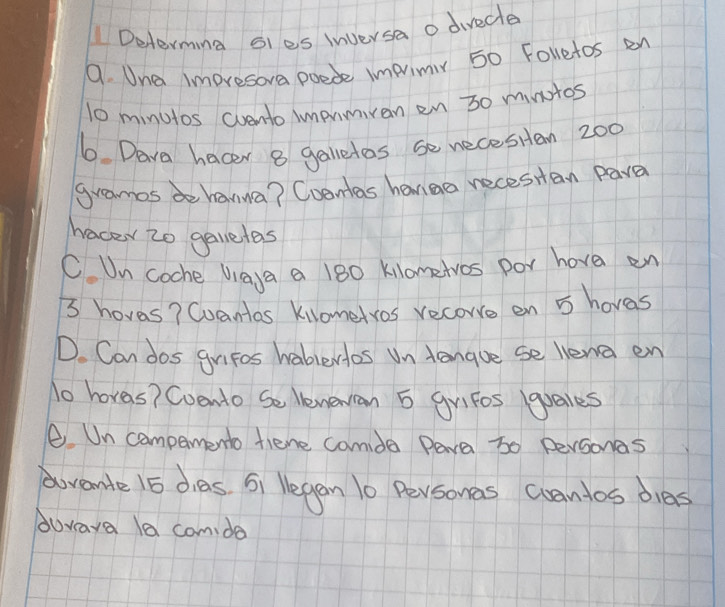 1 Determina si es inversa o directa
a. Una impresora puede imprimir 50 Folletos en
10 minutos cuanto imprimiran en 30 minutos
b. Para hacer 8 galletas se necesitan 200
gramos de harina? Cuantas harina necesitan para
hacer 20 galletas
C. Un coche viaja a 180 kilometros por hora en
3 horas? Cuantas kilometros recorre en 5 horas
D. Con dos grifos habiertos Un tanque se llena en
10 horas? Cuanto se llenarian 5 grifos iguales
e. Un campamento tiene comida para 30 personas
durante 15 dias. Si llegan 10 personas cuantos dias
durara la comida